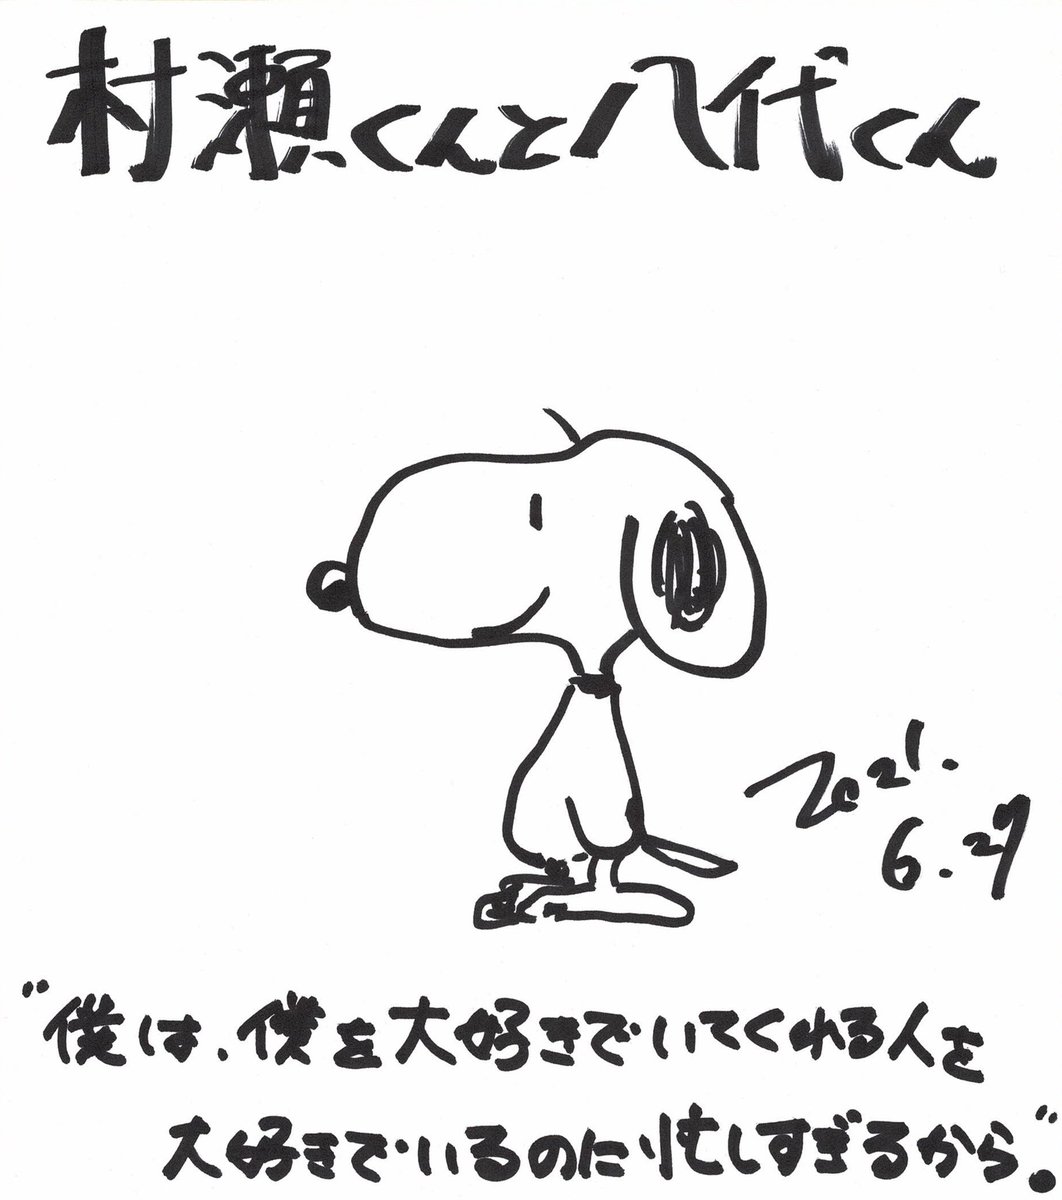 村瀬くんと八代くん
2021.
6.27
“僕は、僕を大好きでいてくれる人を
大好きでいるのに忙しすぎるから。”